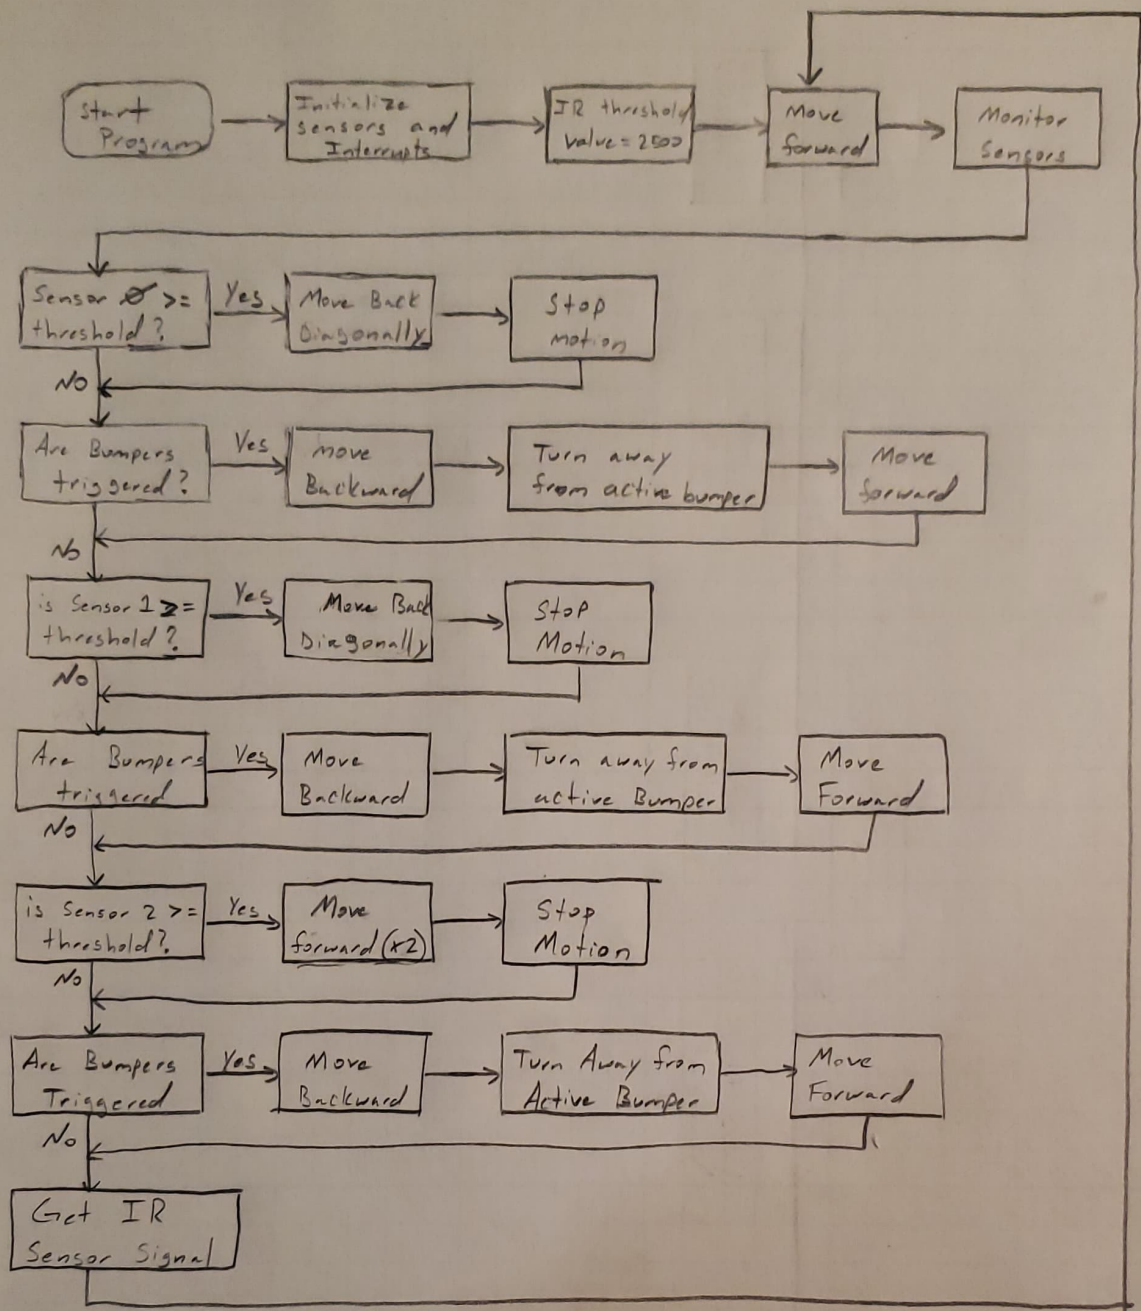 Start
Program
Initialize
sensors and
Interrupts
IR threshold
value = 2500
Move
forward
Monitor
Sensors
Sensor 0 >=
threshold?
Yes
Move Back
Diagonally
Stop
Motion
No
Are Bumpers
triggered?
Yes
Move
Backward
Turn away
from active bumper
Move
forward
No
is Sensor 1 >=
threshold?
Yes
Move Back
Diagonally
Stop
Motion
No
Are Bumpers
triggered
Yes
Move
Backward
Turn away from
active Bumper
Move
Forward
No
is Sensor 2 >=
threshold?
Yes
Move
forward (x2)
Stop
Motion
No
Are Bumpers
Triggered
Yes
Move
Backward
Turn Away from
Active Bumper
Move
Forward
No
Get IR
Sensor Signal